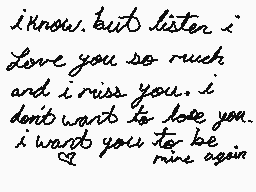 i know. but listen i
Love you so much
and i miss you. i
don't want to lose you.
i want you to be
mine again